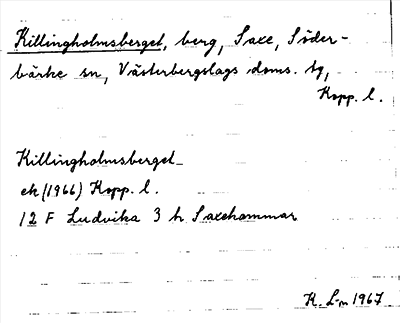 Killingholmsberget, berg, Saxe, Söder-
bärke sn, Västerbergslags doms. tg,
Kopp. l.
Killingholmsberget
ek (1966) Kopp. l.
12 F Ludvika 3 h Saxehammar
K. L-m 1967